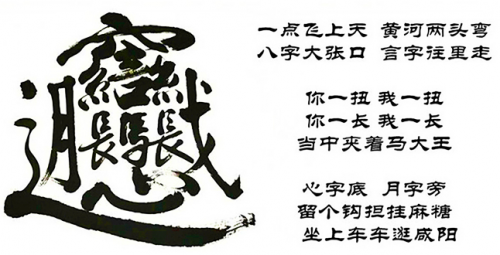 𰻞
一点飞上天 黄河两头弯
八字大张口 言字往里走
你一扭 我一扭
你一长 我一长
当中夹着马大王
心字底 月字旁
留个钩担挂麻糖
坐上车车逛咸阳